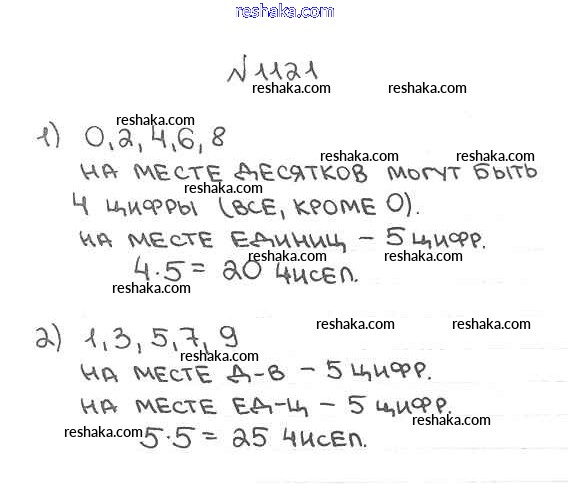 reshaka.com
№1121
reshaka.com reshaka.com
reshaka.com
1) 0, 2, 4, 6, 8
reshaka.com reshaka.com
НА МЕСТЕ ДЕСЯТКОВ МОГУТ БЫТЬ
reshaka.com
4 ЦИФРЫ (ВСЕ, КРОМЕ 0).
reshaka.com
НА МЕСТЕ ЕДИНИЦ – 5 ЦИФР.
reshaka.com reshaka.com
4·5 = 20 ЧИСЕЛ.
reshaka.com
reshaka.com reshaka.com
2) 1, 3, 5, 7, 9
reshaka.com
НА МЕСТЕ Д-В – 5 ЦИФР.
reshaka.com
НА МЕСТЕ ЕД-Ц – 5 ЦИФР.
reshaka.com reshaka.com
5·5 = 25 ЧИСЕЛ.